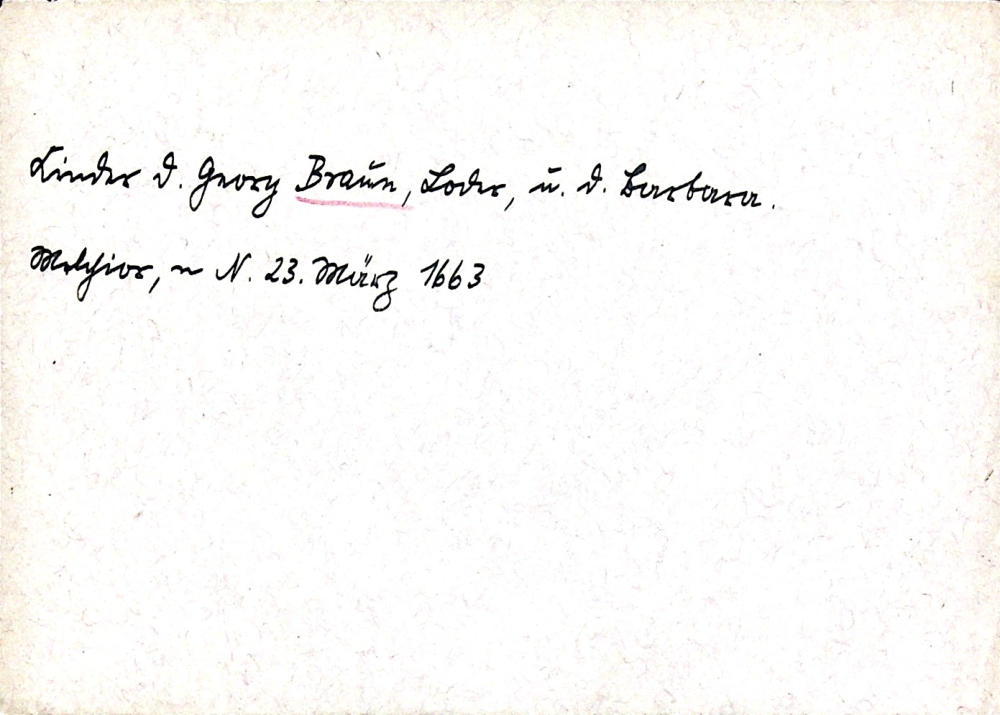 Kinder d. Georg Braun, Loder, u. d. Barbara.
Melchior, ~ N. 23. März 1663